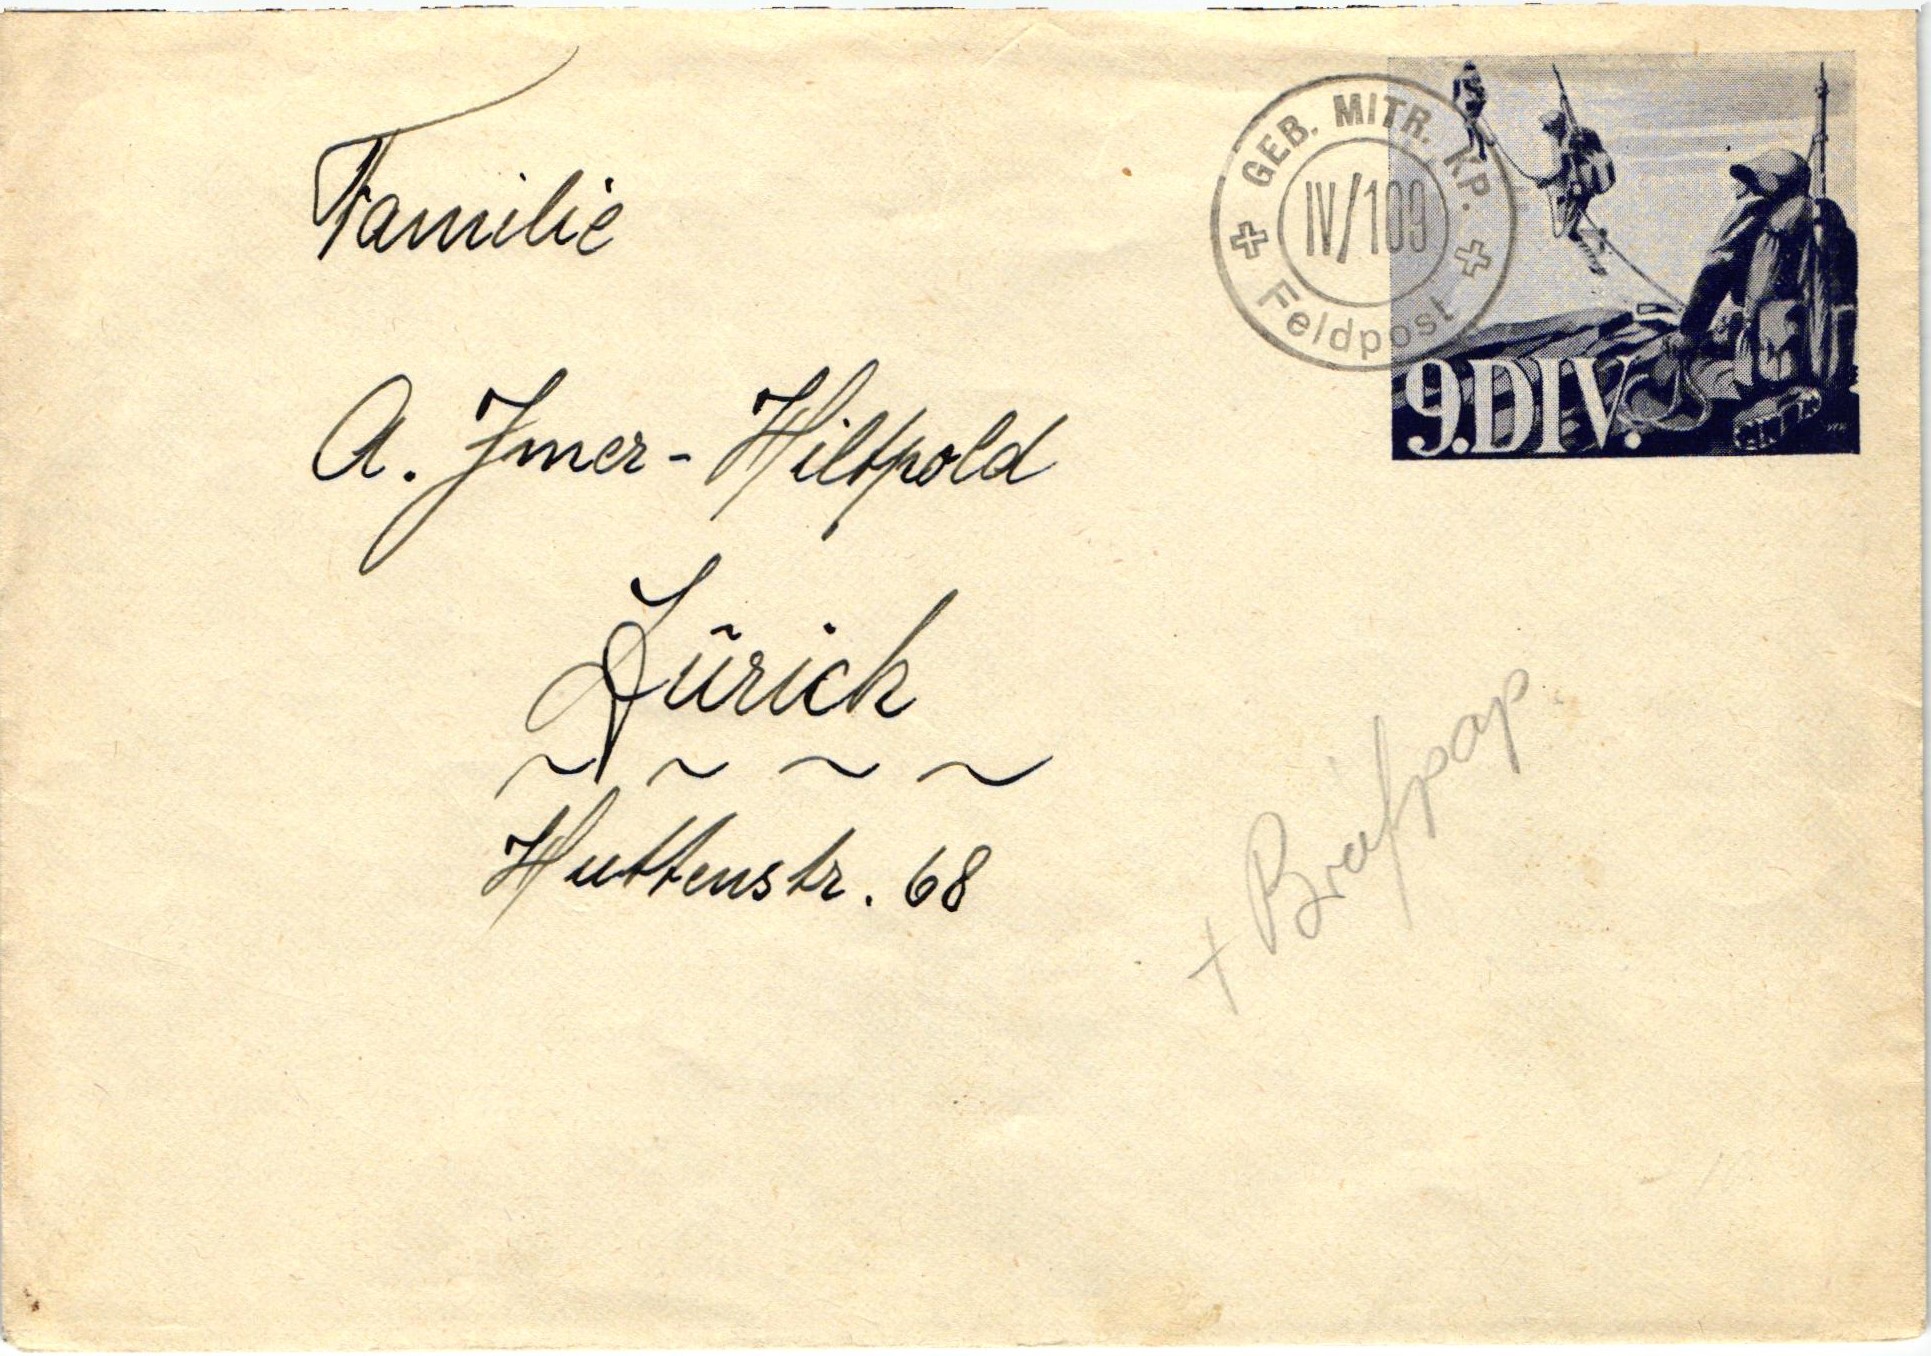 Familie
A. Imer-Hiltpold
Zürich
Huttenstr. 68
GEB. MITR. KP.
IV/109
Feldpost
9.DIV.
+ Briefpap.